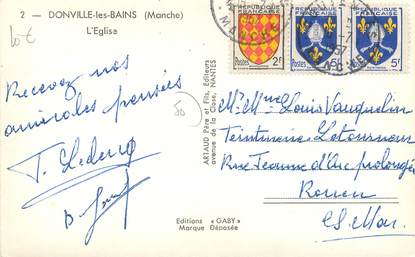 2 - DONVILLE-les-BAINS (Manche)
L'Eglise
10 €
Recevez nos
amicales pensées
T. Leclercq
50
ARTAUD Père et Fils, Editeurs
avenue de la Close, NANTES
Editions « GABY »
Marque Déposée
REPUBLIQUE FRANÇAISE
Postes 2F
REPUBLIQUE FRANÇAISE
5F
REPUBLIQUE FRANÇAISE
Postes 5F
1957
Mr Mme Louis Vauquelin
Teinturerie Letourneur
Rue Jeanne d'Arc prolongée
Rouen
S. Mar.